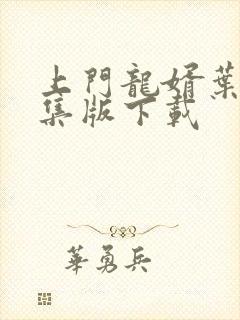 上門龍婿葉
集版下載
華勇兵